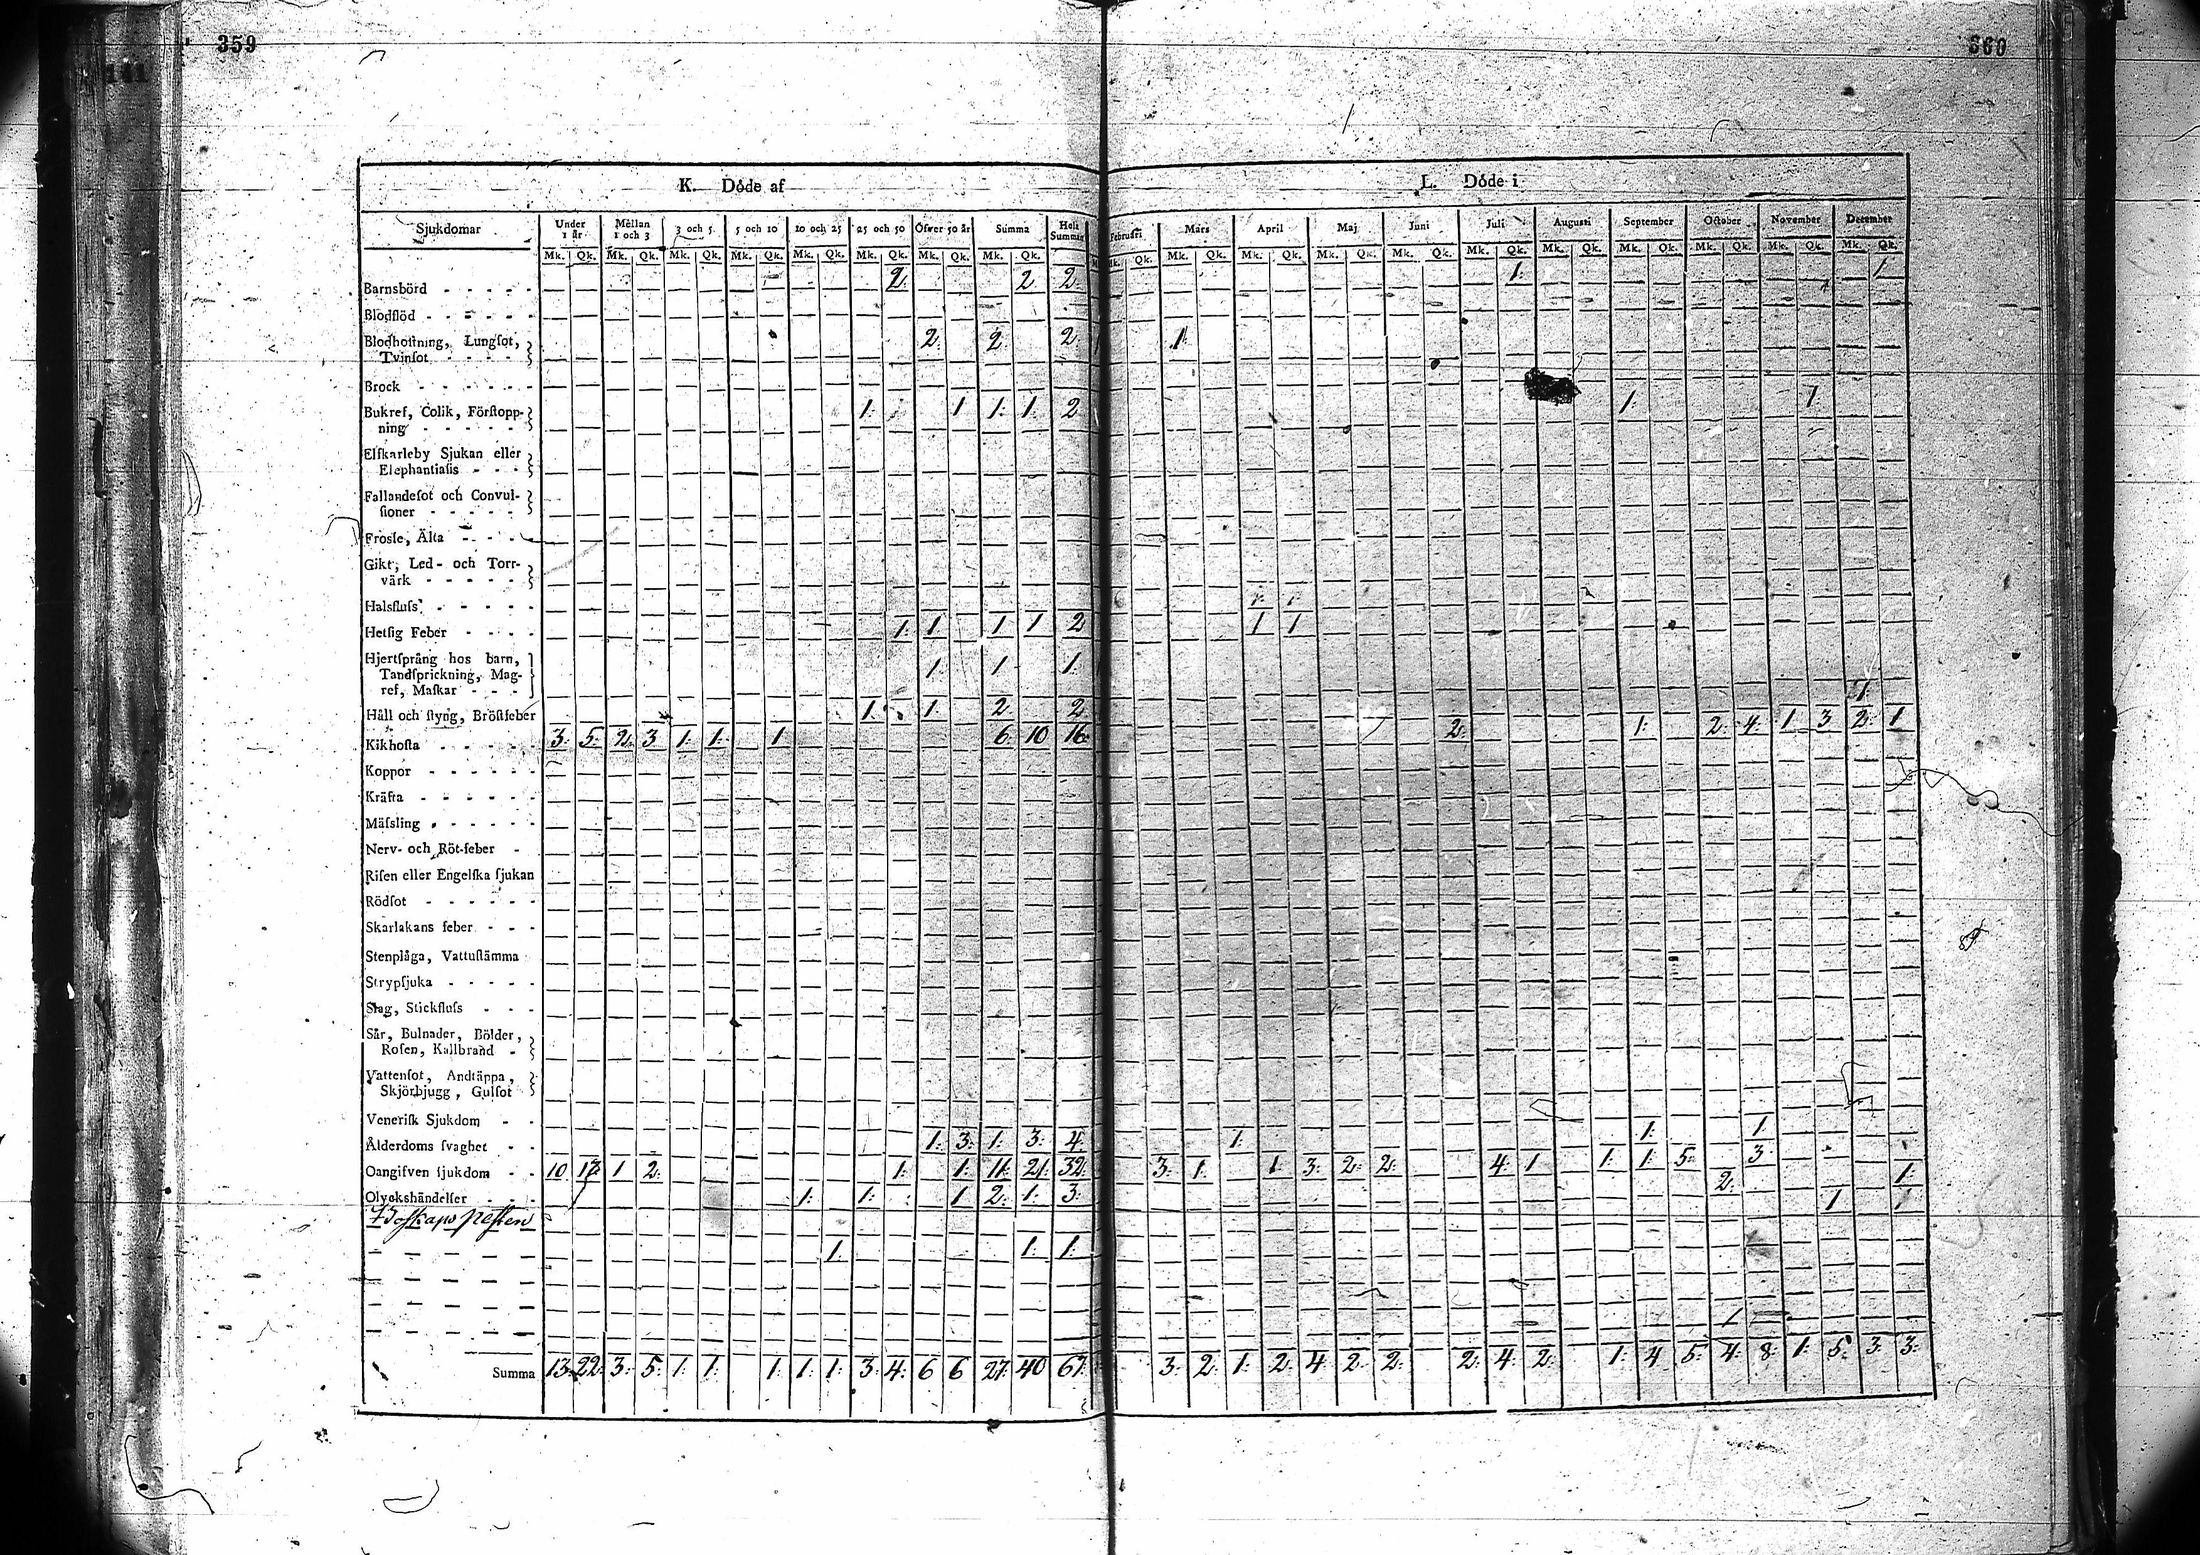 359
360
141
K. Döde af
L. Döde i
Sjukdomar Under 1 år Mellan 1 och 3 3 och 5 5 och 10 10 och 25 25 och 50 Öfwer 50 år Summa Hela Summan
Februari Mars April Maj Juni Juli Augusti September October November December
Mk. Qk. Mk. Qk. Mk. Qk. Mk. Qk. Mk. Qk. Mk. Qk. Mk. Qk. Mk. Qk.
Mk. Qk. Mk. Qk. Mk. Qk. Mk. Qk. Mk. Qk. Mk. Qk. Mk. Qk. Mk. Qk. Mk. Qk. Mk. Qk. Mk. Qk.
Barnsbörd - - - - - 2. 2. 2. 1. 1.
Blodflöd - - - - - -
Blodhoſtning, Lungſot, 2. 2. 2. 1.
Tvinſot - - - -
Brock - - - - - -
Bukref, Colik, Förſtopp- 1. 1 1. 1. 2 1. 1
ning - - - - -
Elfkarleby Sjukan eller
Elephantiaſis - - -
Fallandeſot och Convul-
ſioner - - - - -
Froſſe, Älta - - - -
Gikt, Led- och Torr-
värk - - - - -
Halsfluſs - - - - - 1. 1.
Hetſig Feber - - - - 1. 1 1 1 2 1 1
Hjertſprång hos barn, 1. 1. 1.
Tandſprickning, Mag-
ref, Maſkar - - -
Håll och ſtyng, Bröſtfeber 1. 1. 2 2 1
Kikhoſta - - - - - 3. 5. 2. 3 1. 1. 1 6. 10 16. 2. 1. 2. 4. 1 3 2. 1
Koppor - - - - - -
Kräfta - - - - - -
Mäſsling - - - - - -
Nerv- och Röt-feber -
Riſen eller Engelſka ſjukan
Rödſot - - - - - -
Skarlakans feber - - -
Stenplåga, Vattuſtämma
Strypſjuka - - - - -
Slag, Stickfluſs - - -
Sår, Bulnader, Bölder,
Roſen, Kallbrand -
Vattenſot, Andtäppa,
Skjörbjugg, Gulſot
Veneriſk Sjukdom - -
Ålderdoms ſvaghet - - 1. 3. 1. 3. 4. 1. 1. 1
Oangifven ſjukdom - - 10 17. 1 2. 1. 1. 11. 21. 32. 3. 1. 1. 3. 2. 2. 4. 1 1. 1. 5. 3.
Olyckshändelſer - - - 1. 1. 1 2. 1. 3. 2. 1. 1 1
Boskaps pesten
1. 1. 1.
1
Summa 13. 22. 3. 5. 1. 1. 1. 1. 1. 3. 4. 6 6 27. 40 67. 3. 2. 1. 2. 4 2. 2. 2. 4. 2. 1. 4 5. 4. 8. 1. 5. 3. 3.